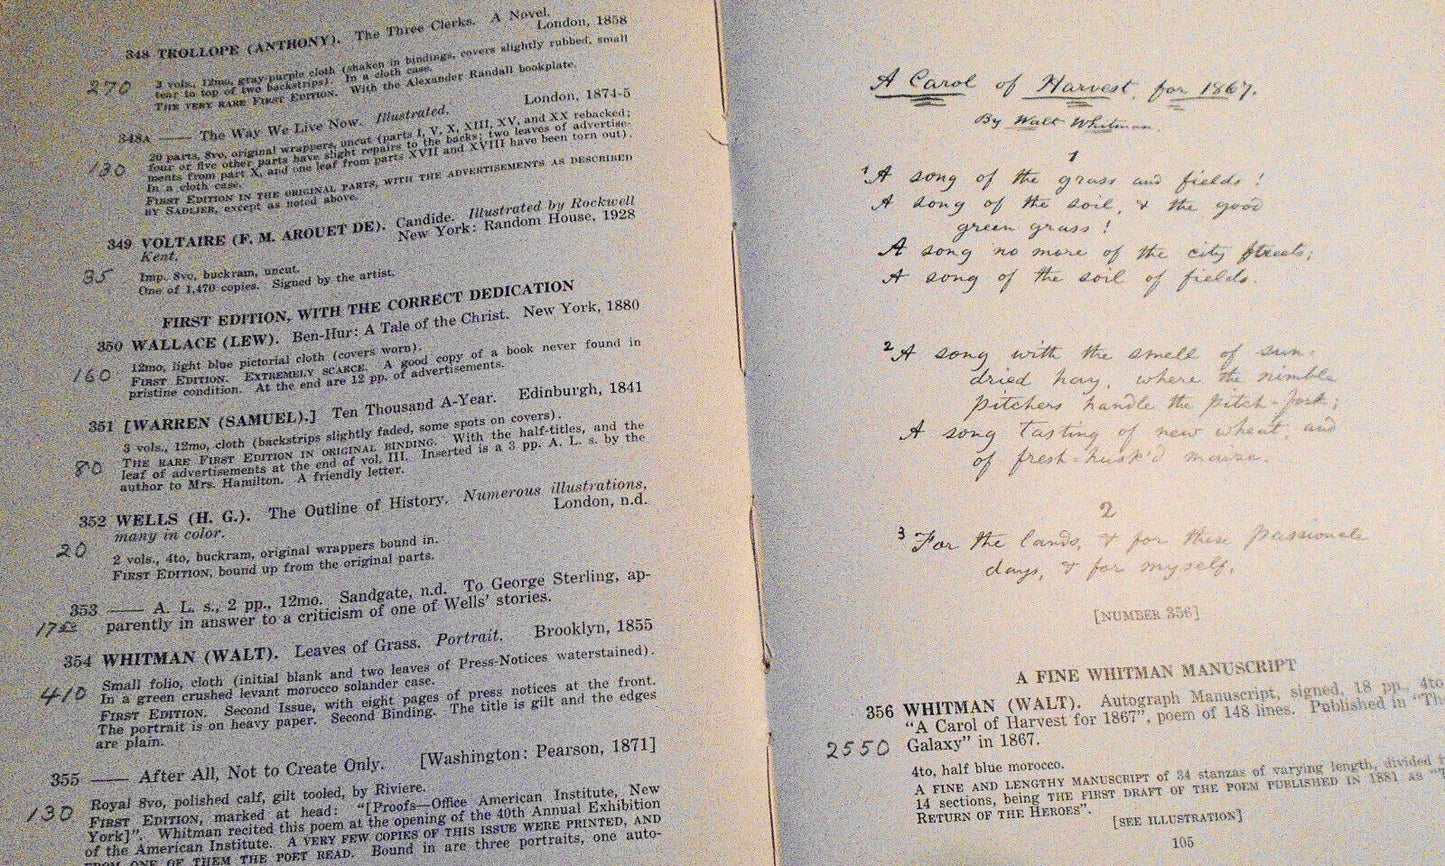 348 TROLLOPE (ANTHONY). The Three Clerks. A Novel.
London, 1858
3 vols., 12mo, gray-purple cloth (shaken in bindings, covers slightly rubbed, small
270
tear to top of two backstrips). In a cloth case.
THE VERY RARE FIRST EDITION. With the Alexander Randall bookplate.
348A —— The Way We Live Now. Illustrated.
London, 1874-5
20 parts, 8vo, original wrappers, uncut (parts I, V, X, XIII, XV, and XX rebacked;
130
four or five other parts have slight repairs to the backs; two leaves of advertise-
ments from part X, and one leaf from parts XVII and XVIII have been torn out).
In a cloth case.
FIRST EDITION IN THE ORIGINAL PARTS, WITH THE ADVERTISEMENTS AS DESCRIBED
BY SADLIER, except as noted above.
349 VOLTAIRE (F. M. AROUET DE). Candide. Illustrated by Rockwell
Kent. New York: Random House, 1928
35
Imp. 8vo, buckram, uncut.
One of 1,470 copies. Signed by the artist.
FIRST EDITION, WITH THE CORRECT DEDICATION
350 WALLACE (LEW). Ben-Hur: A Tale of the Christ. New York, 1880
160
12mo, light blue pictorial cloth (covers worn).
FIRST EDITION. EXTREMELY SCARCE. A good copy of a book never found in
pristine condition. At the end are 12 pp. of advertisements.
351 [WARREN (SAMUEL).] Ten Thousand A-Year. Edinburgh, 1841
3 vols., 12mo, cloth (backstrips slightly faded, some spots on covers).
80
THE RARE FIRST EDITION IN ORIGINAL BINDING. With the half-titles, and the
leaf of advertisements at the end of vol. III. Inserted is a 3 pp. A. L. s. by the
author to Mrs. Hamilton. A friendly letter.
352 WELLS (H. G.). The Outline of History. Numerous illustrations,
many in color. London, n.d.
20
2 vols., 4to, buckram, original wrappers bound in.
FIRST EDITION, bound up from the original parts.
353 —— A. L. s., 2 pp., 12mo. Sandgate, n.d. To George Sterling, ap-
17 50
parently in answer to a criticism of one of Wells' stories.
354 WHITMAN (WALT). Leaves of Grass. Portrait. Brooklyn, 1855
410
Small folio, cloth (initial blank and two leaves of Press-Notices waterstained).
In a green crushed levant morocco solander case.
FIRST EDITION. Second Issue, with eight pages of press notices at the front.
The portrait is on heavy paper. Second Binding. The title is gilt and the edges
are plain.
355 —— After All, Not to Create Only. [Washington: Pearson, 1871]
130
Royal 8vo, polished calf, gilt tooled, by Riviere.
FIRST EDITION, marked at head: "[Proofs—Office American Institute, New
York]". Whitman recited this poem at the opening of the 40th Annual Exhibition
of the American Institute. A VERY FEW COPIES OF THIS ISSUE WERE PRINTED, AND
FROM ONE OF THEM THE POET READ. Bound in are three portraits, one auto-
A Carol of Harvest, for 1867.
By Walt Whitman.
1
1 A song of the grass and fields!
A song of the soil, & the good
green grass!
A song no more of the city streets;
A song of the soil of fields.
2 A song with the smell of sun-
dried hay, where the nimble
pitchers handle the pitch-fork;
A song tasting of new wheat, and
of fresh-husk'd maize.
2
3 For the lands, & for these passionate
days, & for myself,
[NUMBER 356]
A FINE WHITMAN MANUSCRIPT
356 WHITMAN (WALT). Autograph Manuscript, signed, 18 pp., 4to
"A Carol of Harvest for 1867", poem of 148 lines. Published in "Th
2550
Galaxy" in 1867.
4to, half blue morocco.
A FINE AND LENGTHY MANUSCRIPT of 34 stanzas of varying length, divided i
14 sections, being THE FIRST DRAFT OF THE POEM PUBLISHED IN 1881 AS "T
RETURN OF THE HEROES".
[SEE ILLUSTRATION]
105